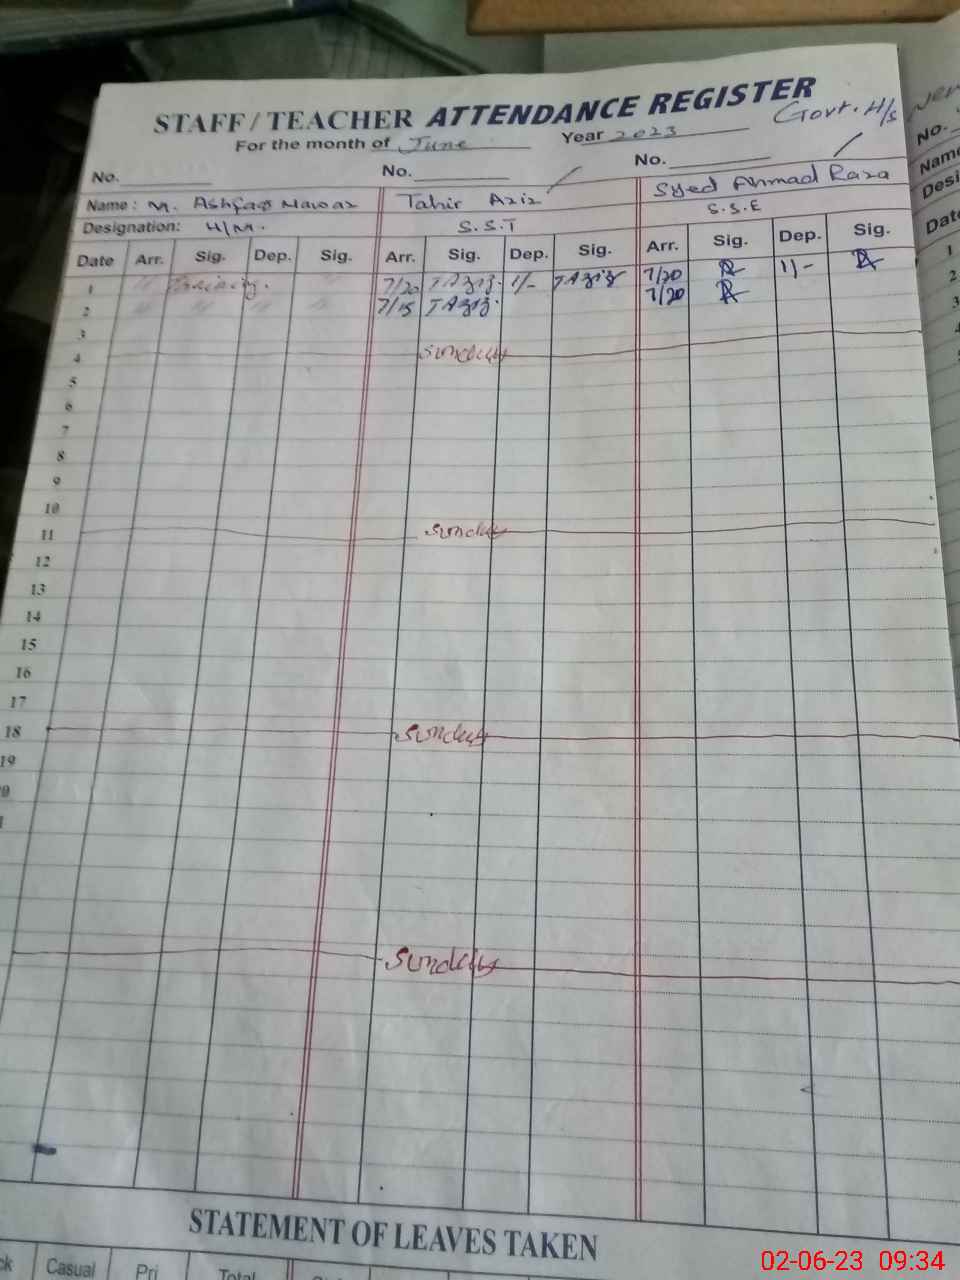 STAFF / TEACHER ATTENDANCE REGISTER
For the month of June Year 2023 Govt. H/S
No. No. No.
Name: M. Ashfaq Nawaz Tahir Aziz Syed Ahmad Raza
Designation: H/M. S.S.T S.S.E
Date Arr. Sig. Dep. Sig. Arr. Sig. Dep. Sig. Arr. Sig. Dep. Sig.
1 Training. 7/20 TAziz 1/- TAziz 7/20 1/-
2 7/15 TAziz 7/20
3
4 Sunday
5
6
7
8
9
10
11 Sunday
12
13
14
15
16
17
18 Sunday
19
Sunday
STATEMENT OF LEAVES TAKEN
Casual Total
No.
Name
Date
1
2
3
02-06-23 09:34